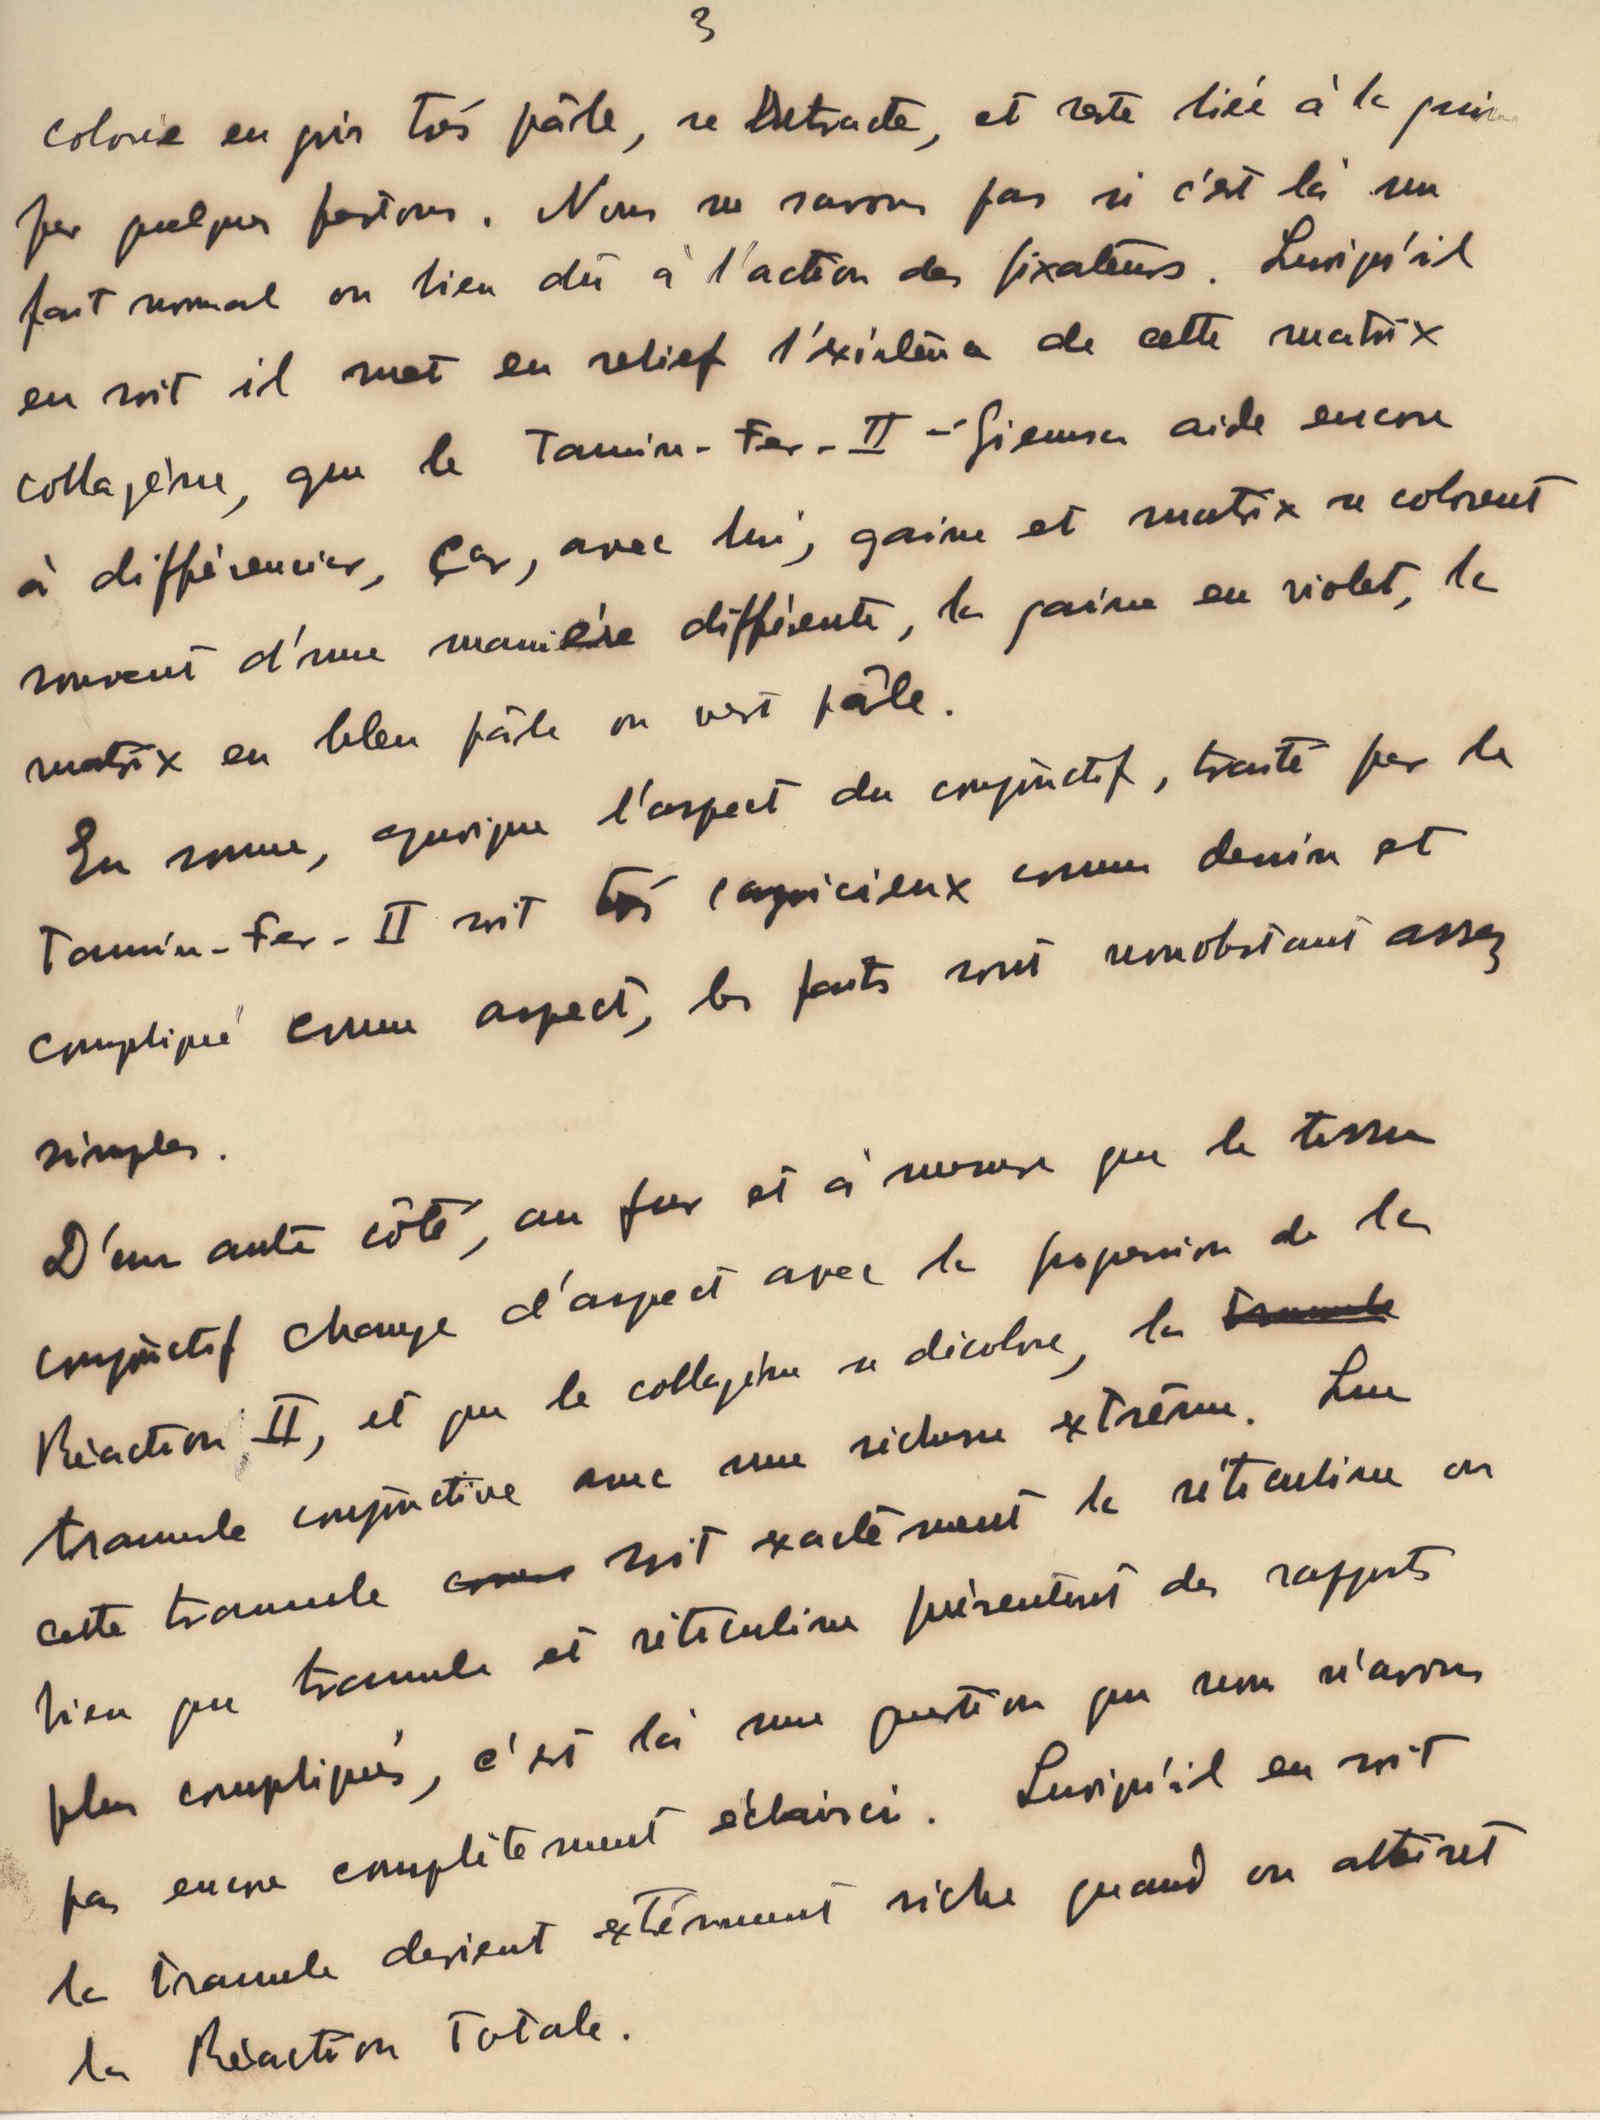 3
colorie en gris très pâle, se détracte, et reste liée à la gaine
par quelques festons. Nous ne savons pas si c'est là un
fait normal ou bien dû à l'action des fixateurs. Quoiqu'il
en soit il met en relief l'existence de cette matrix
collagène, que le Tannin-Fer-II-Giemsa aide encore
à différencier, Car, avec lui, gaine et matrix se colorent
souvent d'une manière différente, la gaine en violet, la
matrix en bleu pâle ou vert pâle.
En somme, quoique l'aspect du conjonctif, traité par le
Tannin-Fer-II soit très capricieux comme dessin et
compliqué comme aspect, les faits sont nonobstant assez
simples.
D'un autre côté, au fur et à mesure que le tissu
conjonctif change d'aspect avec la progression de la
Réaction II, et que le collagène se décolore, la tramule
tramule conjonctive avec une richesse extrême. Que
cette tramule soit exactement la réticuline ou
bien que tramule et réticuline présentent des rapports
plus compliqués, c'est là une question que nous n'avons
pas encore complètement éclairci. Quoiqu'il en soit
la tramule devient extérmement riche quand on atteint
la Réaction Totale.